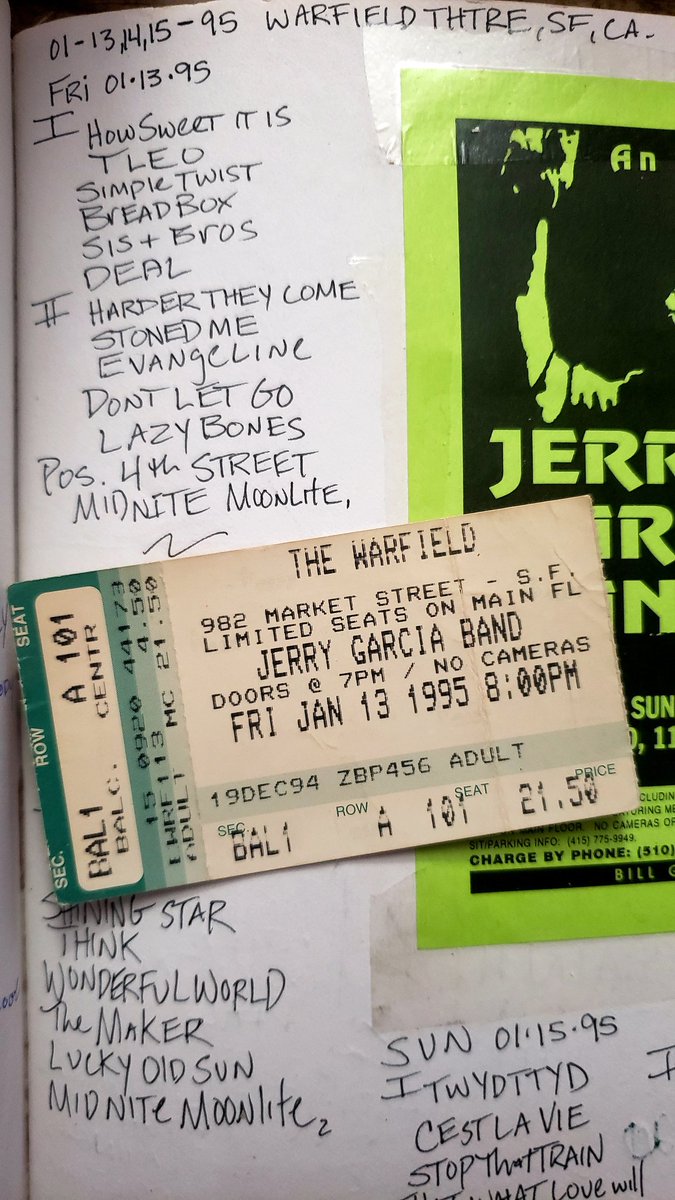 01-13,14,15-95 WARFIELD THTRE, SF, CA.
FRi 01.13.95
I HOW SWEET IT IS
TLEO
SIMPLE TWIST
BREADBOX
SIS + EROS
DEAL
II HARDER THEY COME
STONED ME
EVANGELINE
DONT LET GO
LAZY BONES
POS. 4th STREET
MIDNITE MOONLITE,
An
JERR
IN
SUN
, 11
NO CAMERAS OF
SIT/PARKING INFO: (415) 775-9949.
CHARGE BY PHONE: (510)
BILL G
THE WARFIELD
982 MARKET STREET - S.F.
LIMITED SEATS ON MAIN FL
JERRY GARCIA BAND
DOORS @ 7PM / NO CAMERAS
FRI JAN 13 1995 8:00PM
19DEC94 ZBP456 ADULT
SEC. ROW SEAT PRICE
BAL1 A 101 21.50
SEC. ROW SEAT
BAL1 A 101
BALC. CENTR
15 0920 44173
ADULT MC 21.50
4.50
SHINING STAR
THINK
WONDERFUL WORLD
The MAKER
LUCKY OLD SUN
MIDNITE MOONLITE
SUN 01.15.95
I TWYDTTYD
CEST LA VIE
STOP THAT TRAIN
WHAT LOVE will